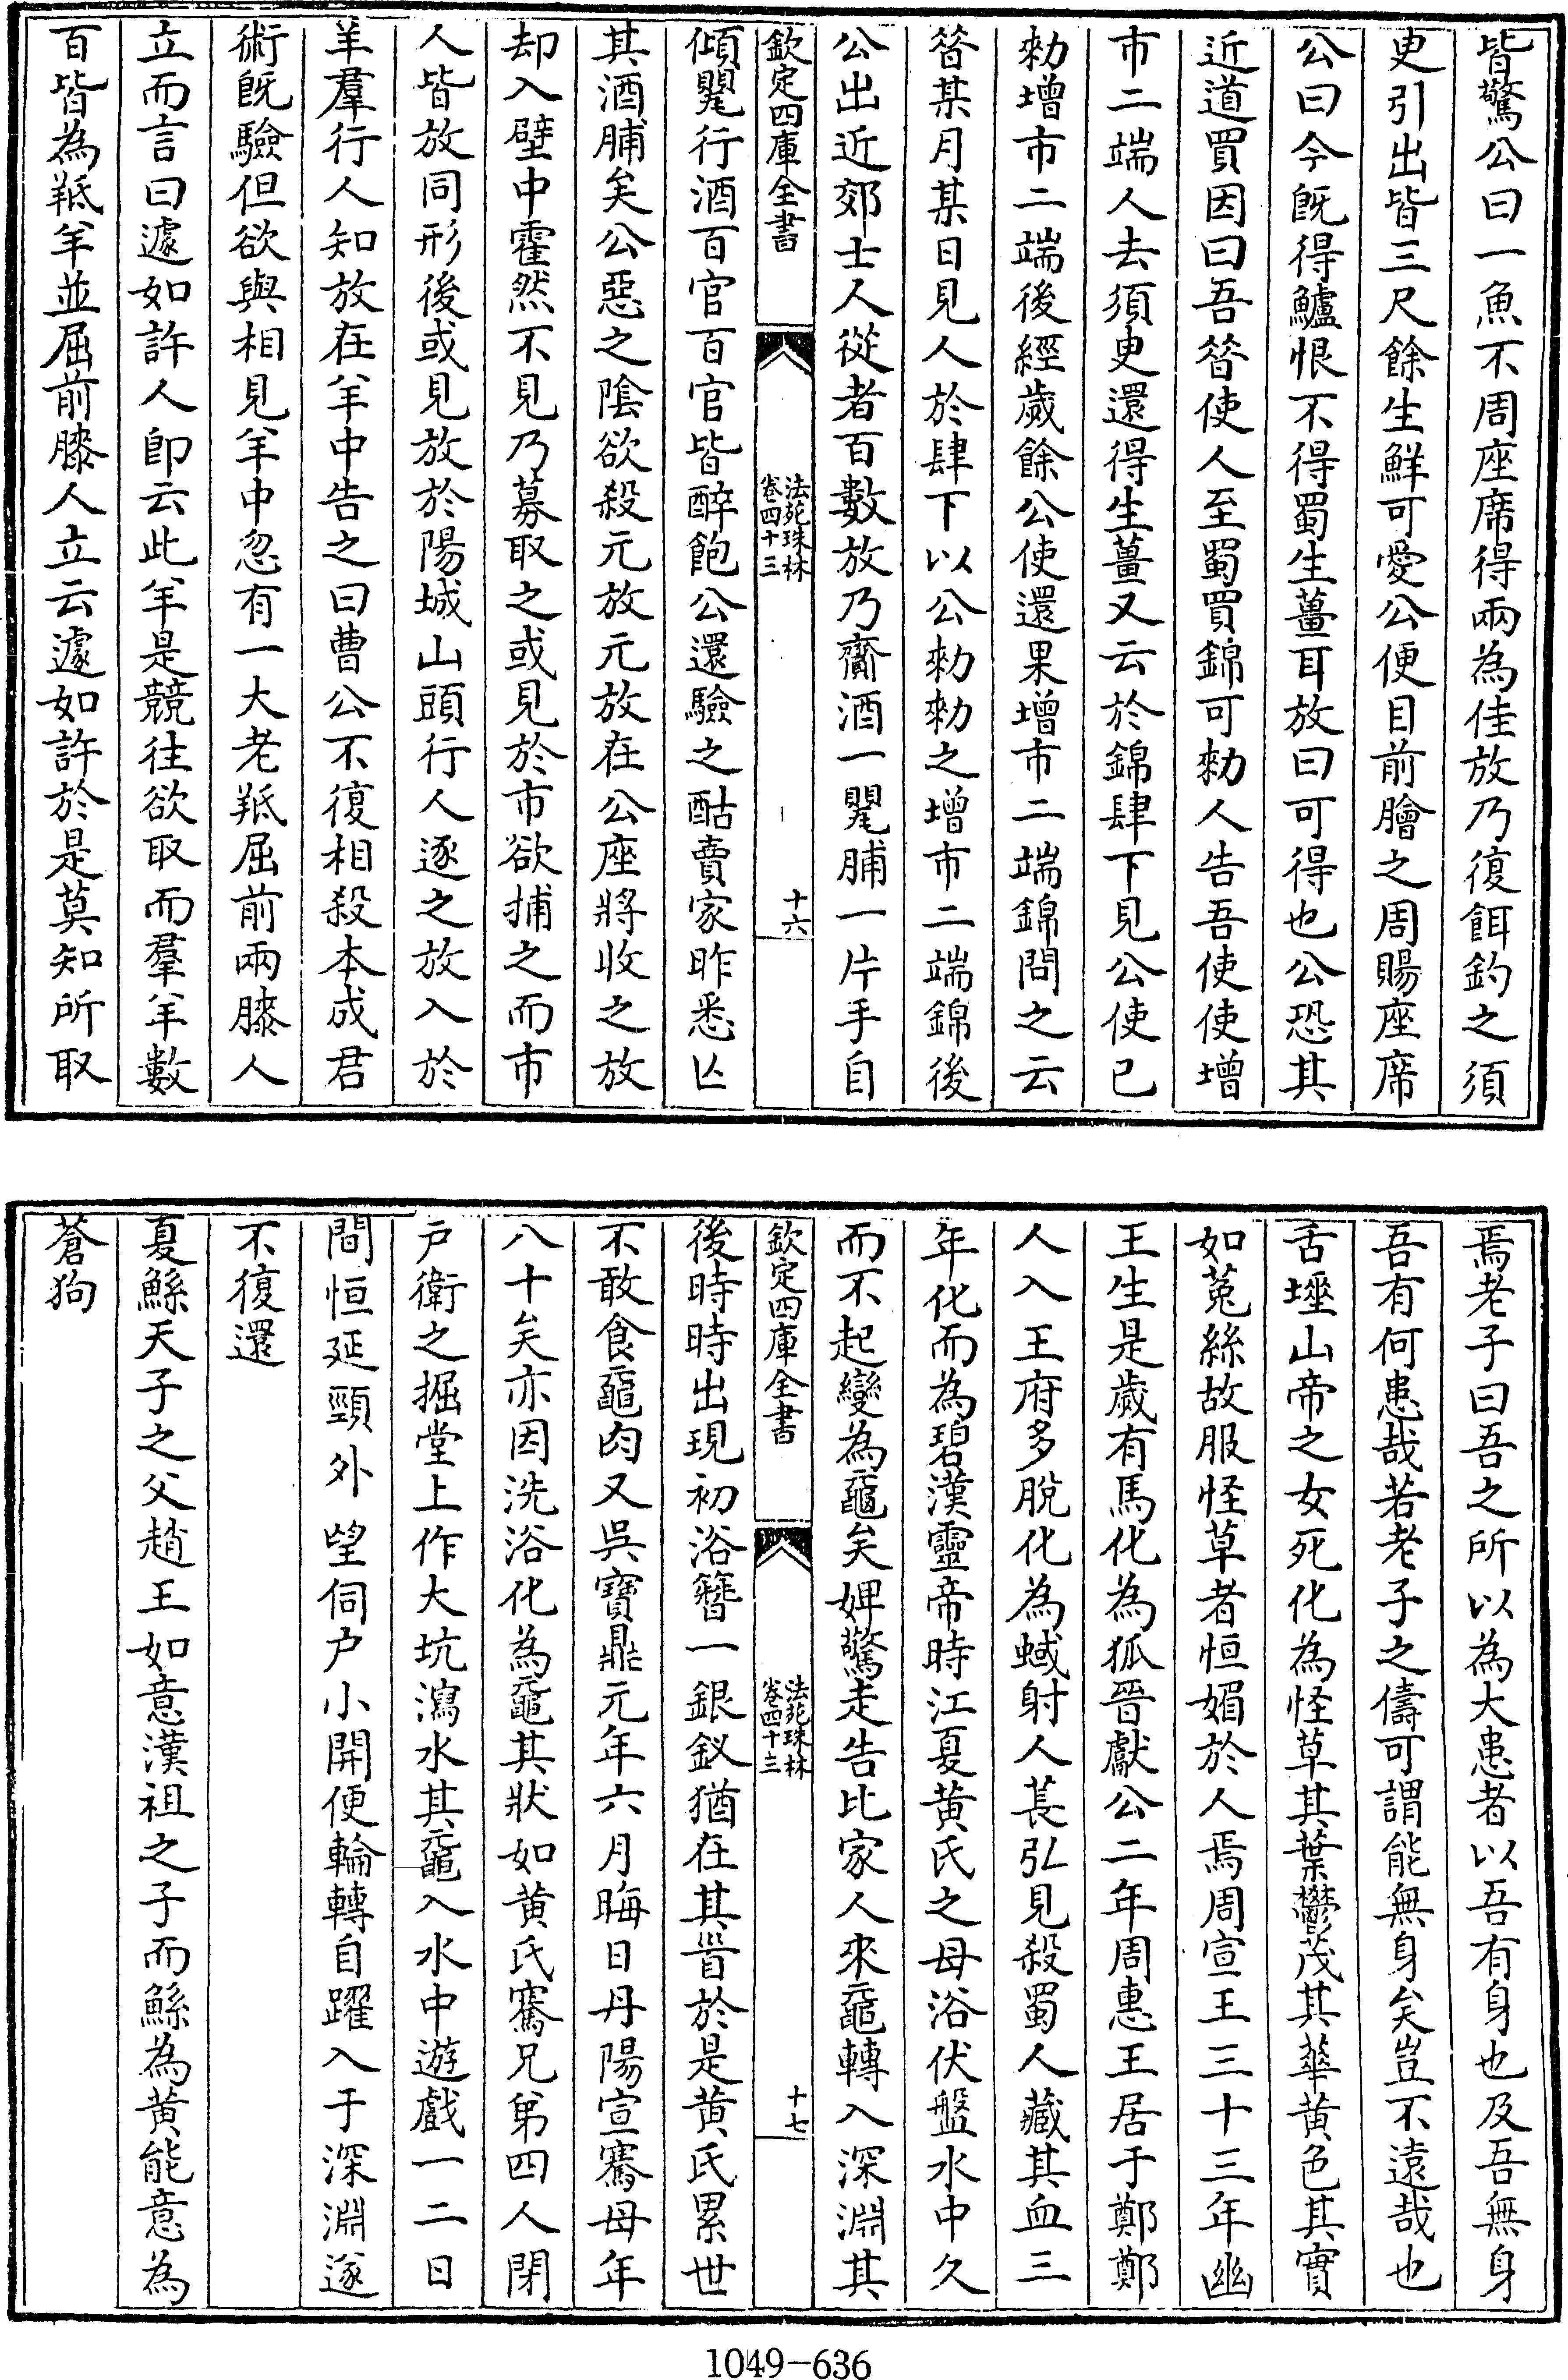 皆驚公曰一魚不周座席得兩為佳放乃復餌釣之須
叟引出皆三尺餘生鮮可愛公便目前膾之周賜座席
公曰今既得鱸恨不得蜀生薑耳放曰可得也公恐其
近道買因曰吾昝使人至蜀買錦可勑人告吾使使增
市二端人去須叟還得生薑又云於錦肆下見公使已
勑增市二端後經歲餘公使還果增市二端錦問之云
昝某月某日見人於肆下以公勑勑之增市二端錦後
公出近郊士人從者百數放乃齎酒一甖脯一片手自
欽定四庫全書
法苑珠林
卷四十三
十六
傾甖行酒百官百官皆醉飽公還驗之酤賣家昨悉亾
其酒脯矣公惡之陰欲殺元放元放在公座將收之放
却入壁中霍然不見乃募取之或見於市欲捕之而市
人皆放同形後或見放於陽城山頭行人逐之放入於
羊羣行人知放在羊中告之曰曹公不復相殺本成君
術既驗但欲與相見羊中忽有一大老羝屈前兩膝人
立而言曰遽如許人即云此羊是競往欲取而羣羊數
百皆為羝羊並屈前膝人立云遽如許於是莫知所取
焉老子曰吾之所以為大患者以吾有身也及吾無身
吾有何患哉若老子之儔可謂能無身矣豈不遠哉也
舌埵山帝之女死化為怪草其葉鬱茂其華黄色其實
如菟絲故服怪草者恒媚於人焉周宣王三十三年幽
王生是歲有馬化為狐晉獻公二年周惠王居于鄭鄭
人入王府多脫化為蜮射人萇弘見殺蜀人藏其血三
年化而為碧漢靈帝時江夏黄氏之母浴伏盤水中久
而不起變為黿矣婢驚走告比家人來黿轉入深淵其
欽定四庫全書
法苑珠林
卷四十三
十七
後時時出現初浴簪一銀釵猶在其首於是黄氏累世
不敢食黿肉又吳寶鼎元年六月晦日丹陽宣騫母年
八十矣亦因洗浴化為黿其狀如黄氏騫兄弟四人閉
户衛之掘堂上作大坑瀉水其黿入水中遊戲一二日
間恒延頸外望伺户小開便輪轉自躍入于深淵遂
不復還
夏鯀天子之父趙王如意漢祖之子而鯀為黄能意為
蒼狗
1049-636